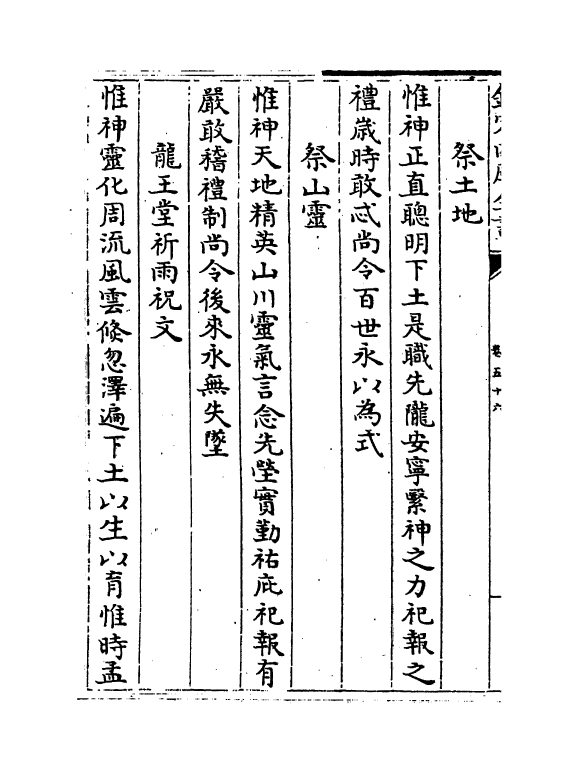 卷五十六
祭土地
惟神正直聰明下土是職先隴安寧繄神之力祀報之
禮歳時敢忒尚令百世永以為式
祭山靈
惟神天地精英山川靈氣言念先塋實勤祐庇祀報有
嚴敢稽禮制尚令後來永無失墜
龍王堂祈雨祝文
惟神靈化周流風雲倏忽澤遍下土以生以育惟時孟